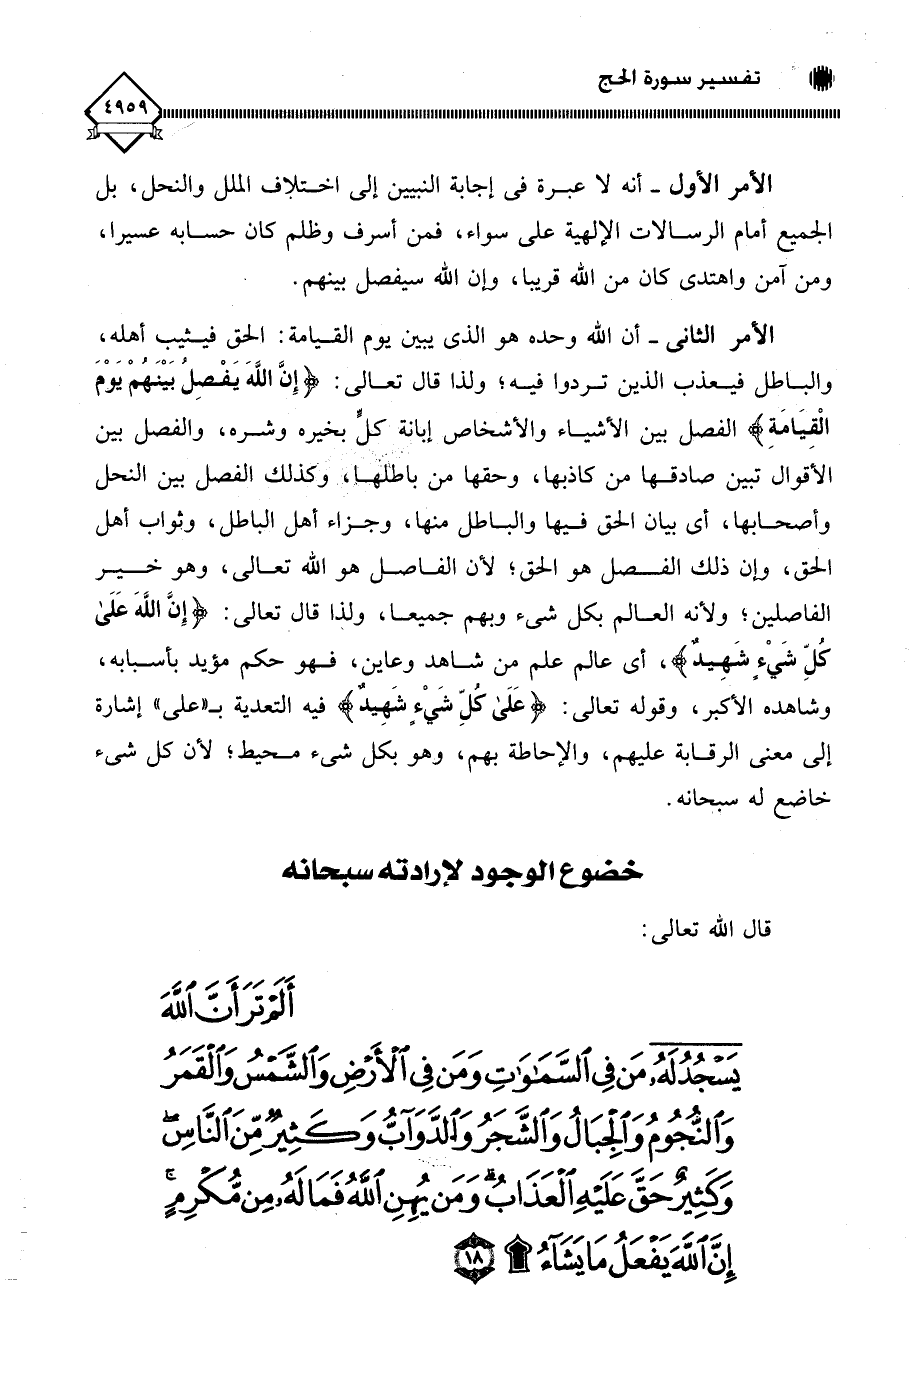 تفسير سورة الحج
٤٩٥٩
الأمر الأول ـ أنه لا عبرة فى إجابة النبيين إلى اختلاف الملل والنحل، بل
الجميع أمام الرسالات الإلهية على سواء، فمن أسرف وظلم كان حسابه عسيرا،
ومن آمن واهتدى كان من الله قريبا، وإن الله سيفصل بينهم.
الأمر الثانى ـ أن الله وحده هو الذى يبين يوم القيامة: الحق فيثيب أهله،
والباطل فيعذب الذين تردوا فيه؛ ولذا قال تعالى: ﴿إِنَّ اللَّهَ يَفْصِلُ بَيْنَهُمْ يَوْمَ
الْقِيَامَةِ﴾ الفصل بين الأشياء والأشخاص إبانة كلٍّ بخيره وشره، والفصل بين
الأقوال تبين صادقها من كاذبها، وحقها من باطلها، وكذلك الفصل بين النحل
وأصحابها، أى بيان الحق فيها والباطل منها، وجزاء أهل الباطل، وثواب أهل
الحق، وإن ذلك الفصل هو الحق؛ لأن الفاصل هو الله تعالى، وهو خير
الفاصلين؛ ولأنه العالم بكل شىء وبهم جميعا، ولذا قال تعالى: ﴿إِنَّ اللَّهَ عَلَىٰ
كُلِّ شَيْءٍ شَهِيدٌ﴾، أى عالم علم من شاهد وعاين، فهو حكم مؤيد بأسبابه،
وشاهده الأكبر، وقوله تعالى: ﴿عَلَىٰ كُلِّ شَيْءٍ شَهِيدٌ﴾ فيه التعدية بـ«على» إشارة
إلى معنى الرقابة عليهم، والإحاطة بهم، وهو بكل شىء محيط؛ لأن كل شىء
خاضع له سبحانه.
خضوع الوجود لإرادته سبحانه
قال الله تعالى:
أَلَمْ تَرَ أَنَّ ٱللَّهَ
يَسْجُدُ لَهُۥ مَن فِى ٱلسَّمَٰوَٰتِ وَمَن فِى ٱلْأَرْضِ وَٱلشَّمْسُ وَٱلْقَمَرُ
وَٱلنُّجُومُ وَٱلْجِبَالُ وَٱلشَّجَرُ وَٱلدَّوَآبُّ وَكَثِيرٌ مِّنَ ٱلنَّاسِ ۖ
وَكَثِيرٌ حَقَّ عَلَيْهِ ٱلْعَذَابُ ۗ وَمَن يُهِنِ ٱللَّهُ فَمَا لَهُۥ مِن مُّكْرِمٍ ۚ
إِنَّ ٱللَّهَ يَفْعَلُ مَا يَشَآءُ ۩ ١٨